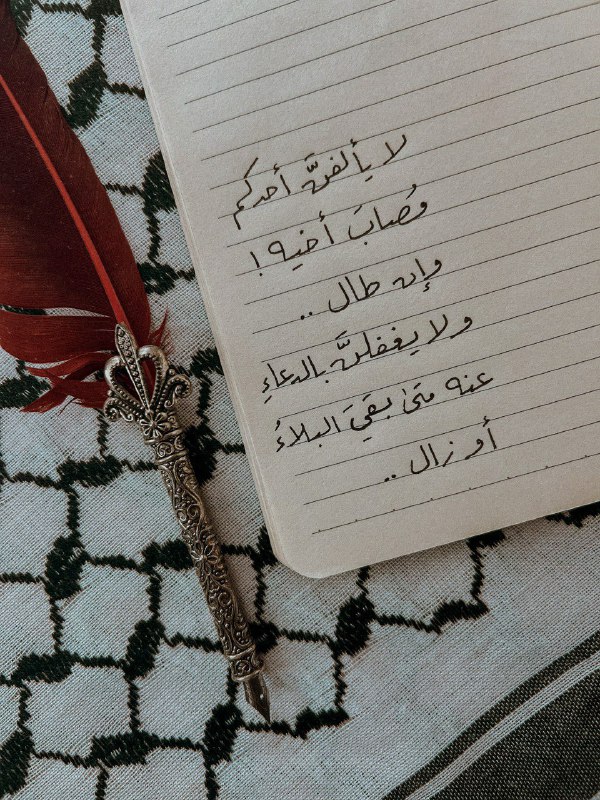 لا يألفنَّ أحدكم
مُصابَ أخيه !
وإن طال ..
ولا يغفلنَّ بالدعاءِ
عنه متىٰ بقيَ البلاءُ
أو زال ..